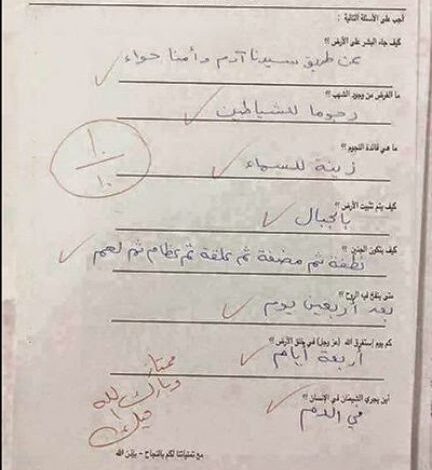 أجب على الأسئلة التالية :
كيف جاء البشر على الأرض ؟؟
عن طريق سيدنا آدم وأمنا حواء
ما الغرض من وجود الشهب ؟؟
رجوما للشياطين
ما هي فائدة النجوم ؟؟
زينة للسماء
١٠
١٠
كيف يتم تثبيت الأرض ؟؟
بالجبال
كيف يتكون الجنين ؟؟
نطفة ثم مضغة ثم علقة ثم عظام ثم لحم
متى ينفخ فيه الروح ؟؟
بعد أربعين يوم
كم يوم إستغرق الله (عز وجل) في خلق الأرض ؟؟
أربعة أيام
أين يجري الشيطان في الإنسان ؟؟
في الدم
ممتاز
وبارك الله
فيك
مع تمنياتنا لكم بالنجاح - بإذن الله